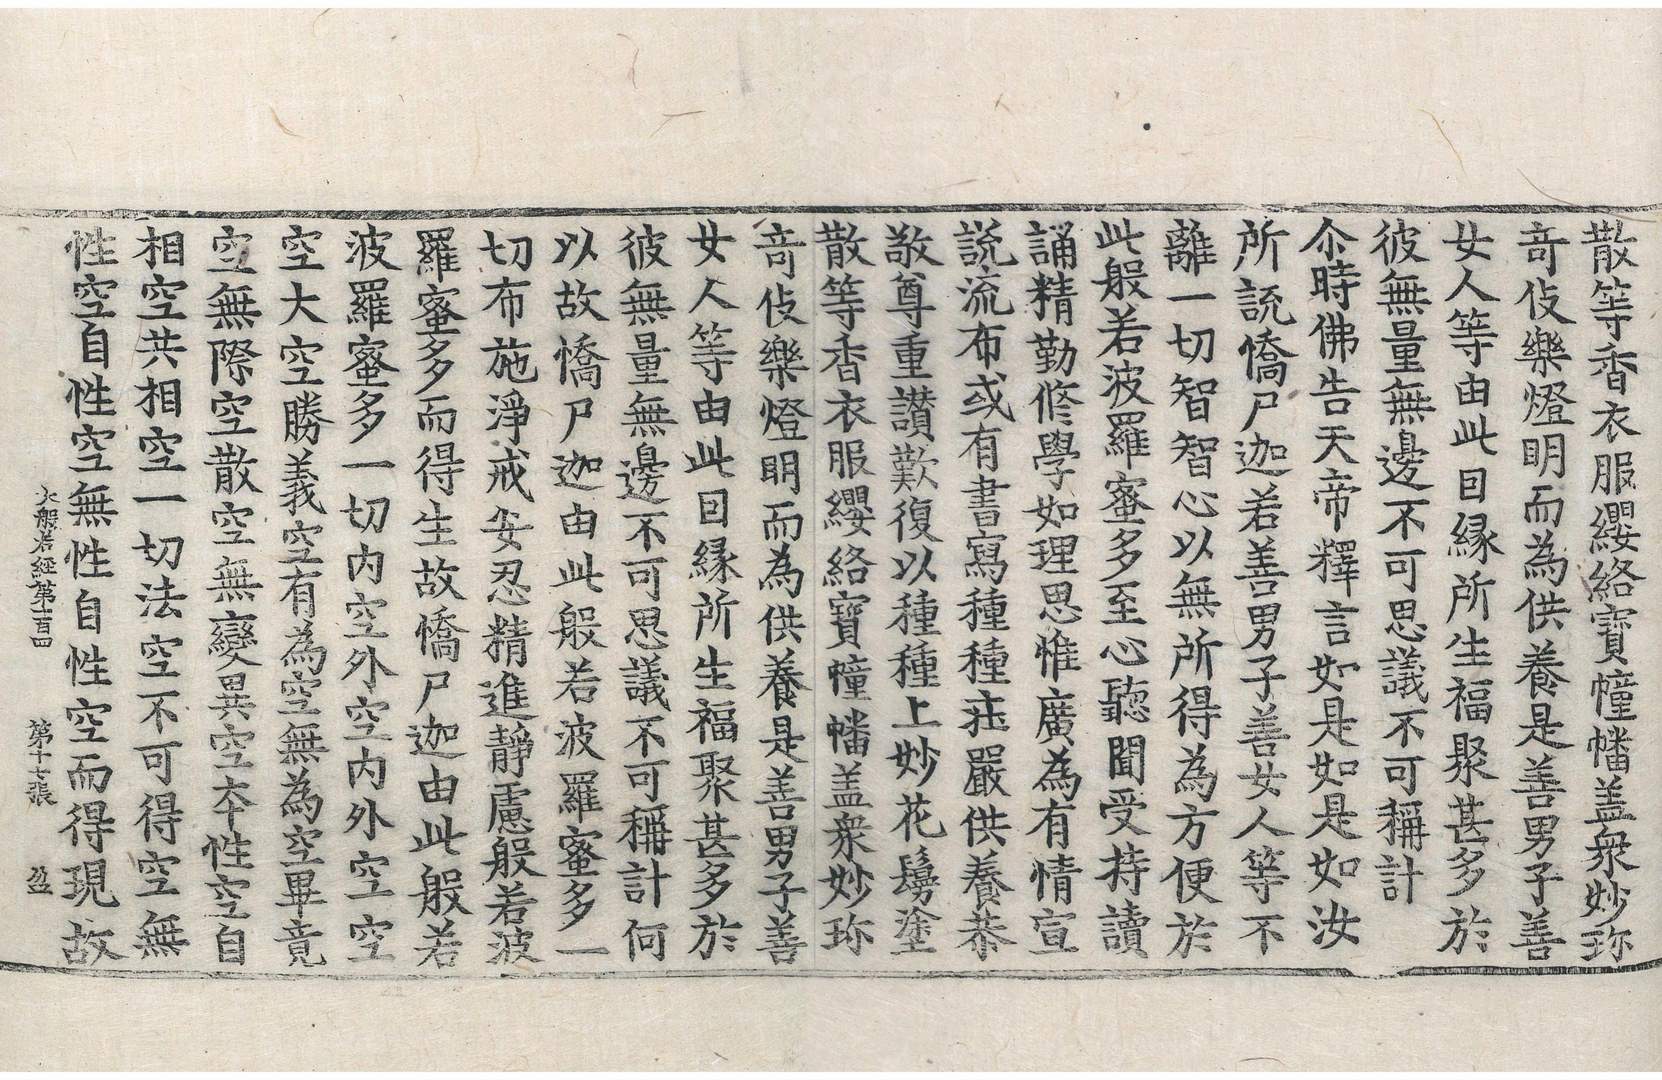 散等香衣服纓絡寶幢幡盖衆妙珎
竒伎樂燈明而為供養是善男子善
女人等由此囙縁所生福聚甚多於
彼無量無邊不可思議不可稱計
尒時佛告天帝釋言如是如是如汝
所説憍尸迦若善男子善女人等不
離一切智智心以無所得為方便於
此般若波羅蜜多至心聽聞受持讀
誦精勤修學如理思惟廣為有情宣
説流布或有書寫種種莊嚴供養恭
敬尊重讃歎復以種種上妙花鬘塗
散等香衣服纓絡寶幢幡盖衆妙珎
竒伎樂燈明而為供養是善男子善
女人等由此囙縁所生福聚甚多於
彼無量無邊不可思議不可稱計何
以故憍尸迦由此般若波羅蜜多一
切布施淨戒安忍精進靜慮般若波
羅蜜多而得生故憍尸迦由此般若
波羅蜜多一切内空外空内外空空
空大空勝義空有為空無為空畢竟
空無際空散空無變異空本性空自
相空共相空一切法空不可得空無
性空自性空無性自性空而得現故
大般若經第一百四 第十七張 盈